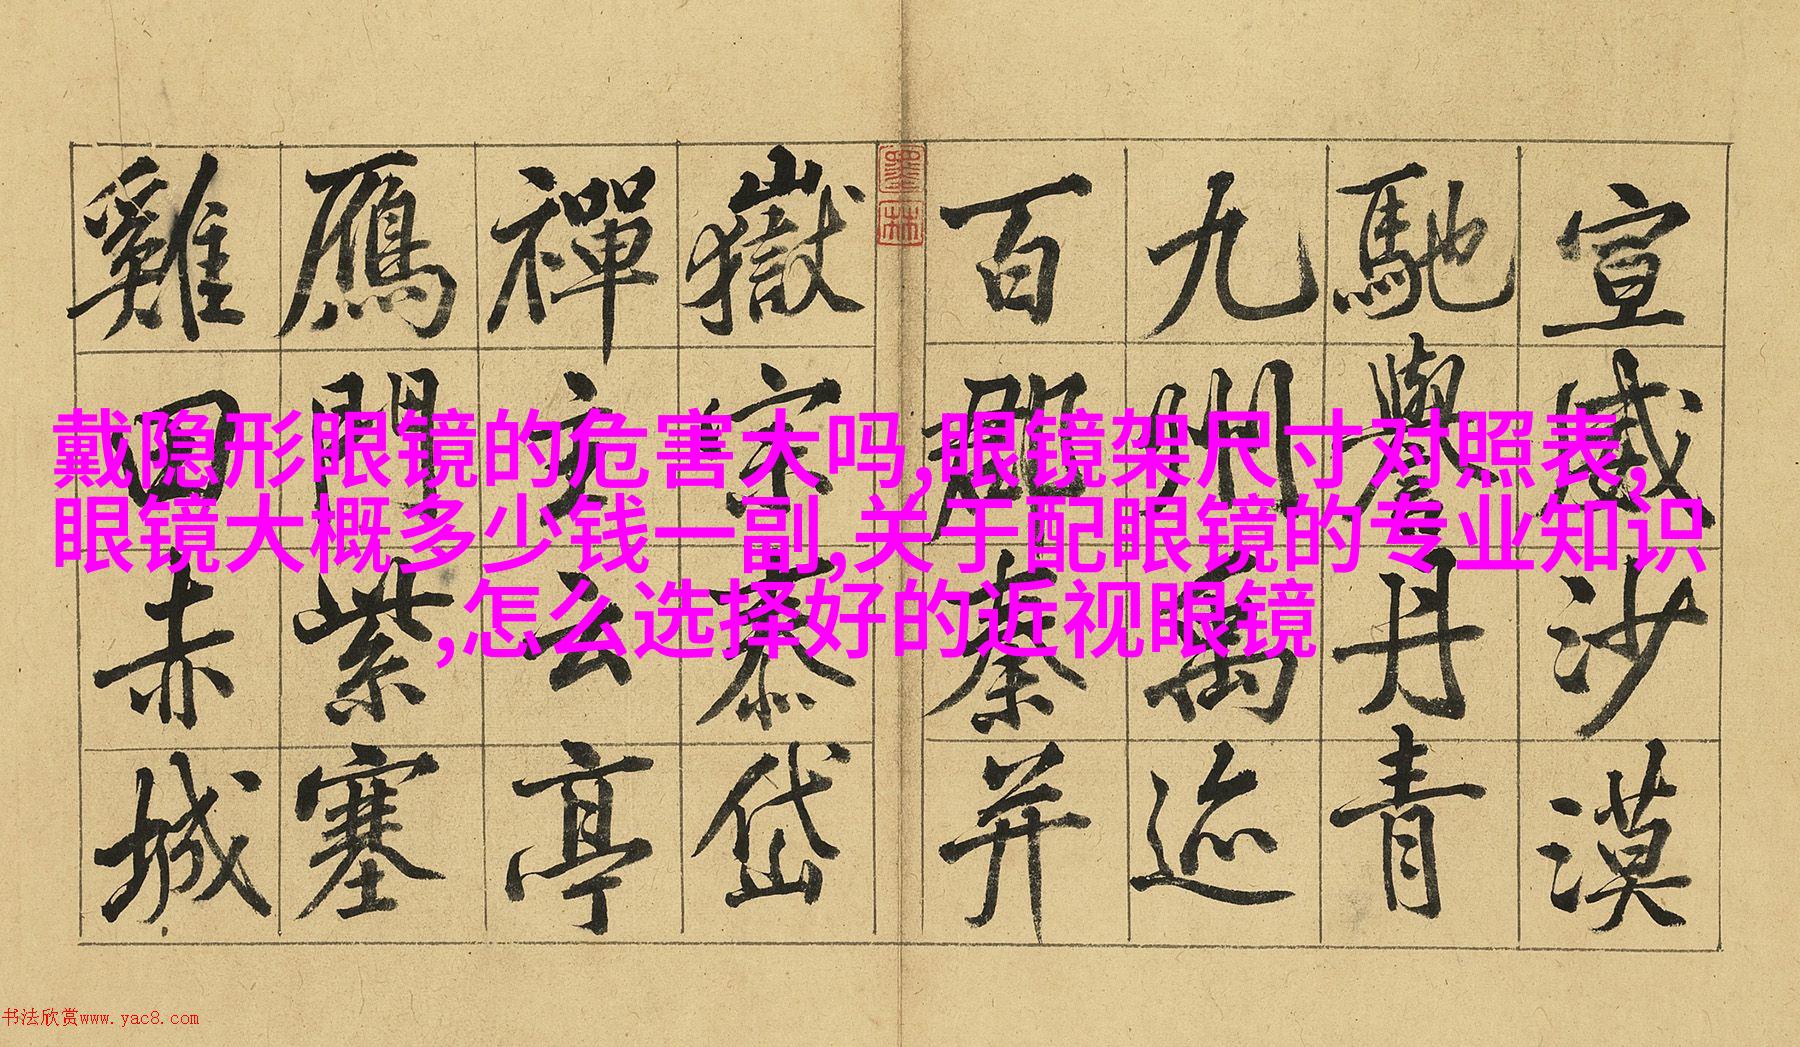 宣威沙漠
馳譽丹青
九州禹迹
百郡秦并
嶽宗泰岱
禪主云亭
鴈門紫塞
雞田赤城
墨林
戴隐形眼镜的危害大吗,眼镜架尺寸对照表,
眼镜大概多少钱一副,关于配眼镜的专业知识
,怎么选择好的近视眼镜
书法欣赏www.yac8.com